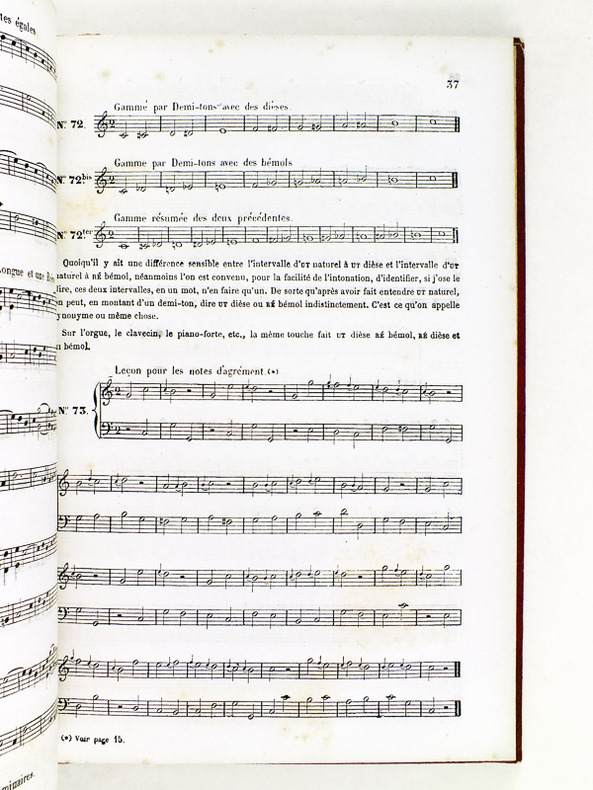 tes égales
37
Gamme par Demi-tons avec des dièses.
Nº 72.
Gamme par Demi-tons avec des bémols
Nº 72bis
Gamme résumée des deux précédentes.
Nº 72ter
ongue et une
Quoiqu'il y ait une différence sensible entre l'intervalle d'UT naturel à UT dièse et l'intervalle d'UT
naturel à RÉ bémol, néanmoins l'on est convenu, pour la facilité de l'intonation, d'identifier, si j'ose le
dire, ces deux intervalles, en un mot, n'en faire qu'un. De sorte qu'après avoir fait entendre UT naturel,
on peut, en montant d'un demi-ton, dire UT dièse ou RÉ bémol indistinctement. C'est ce qu'on appelle
ynonyme ou même chose.
Sur l'orgue, le clavecin, le piano-forte, etc., la même touche fait UT dièse RÉ bémol, RÉ dièse et
bémol.
Leçon pour les notes d'agrément. (*)
Nº 73.
(*) Voir page 15.
minaires.